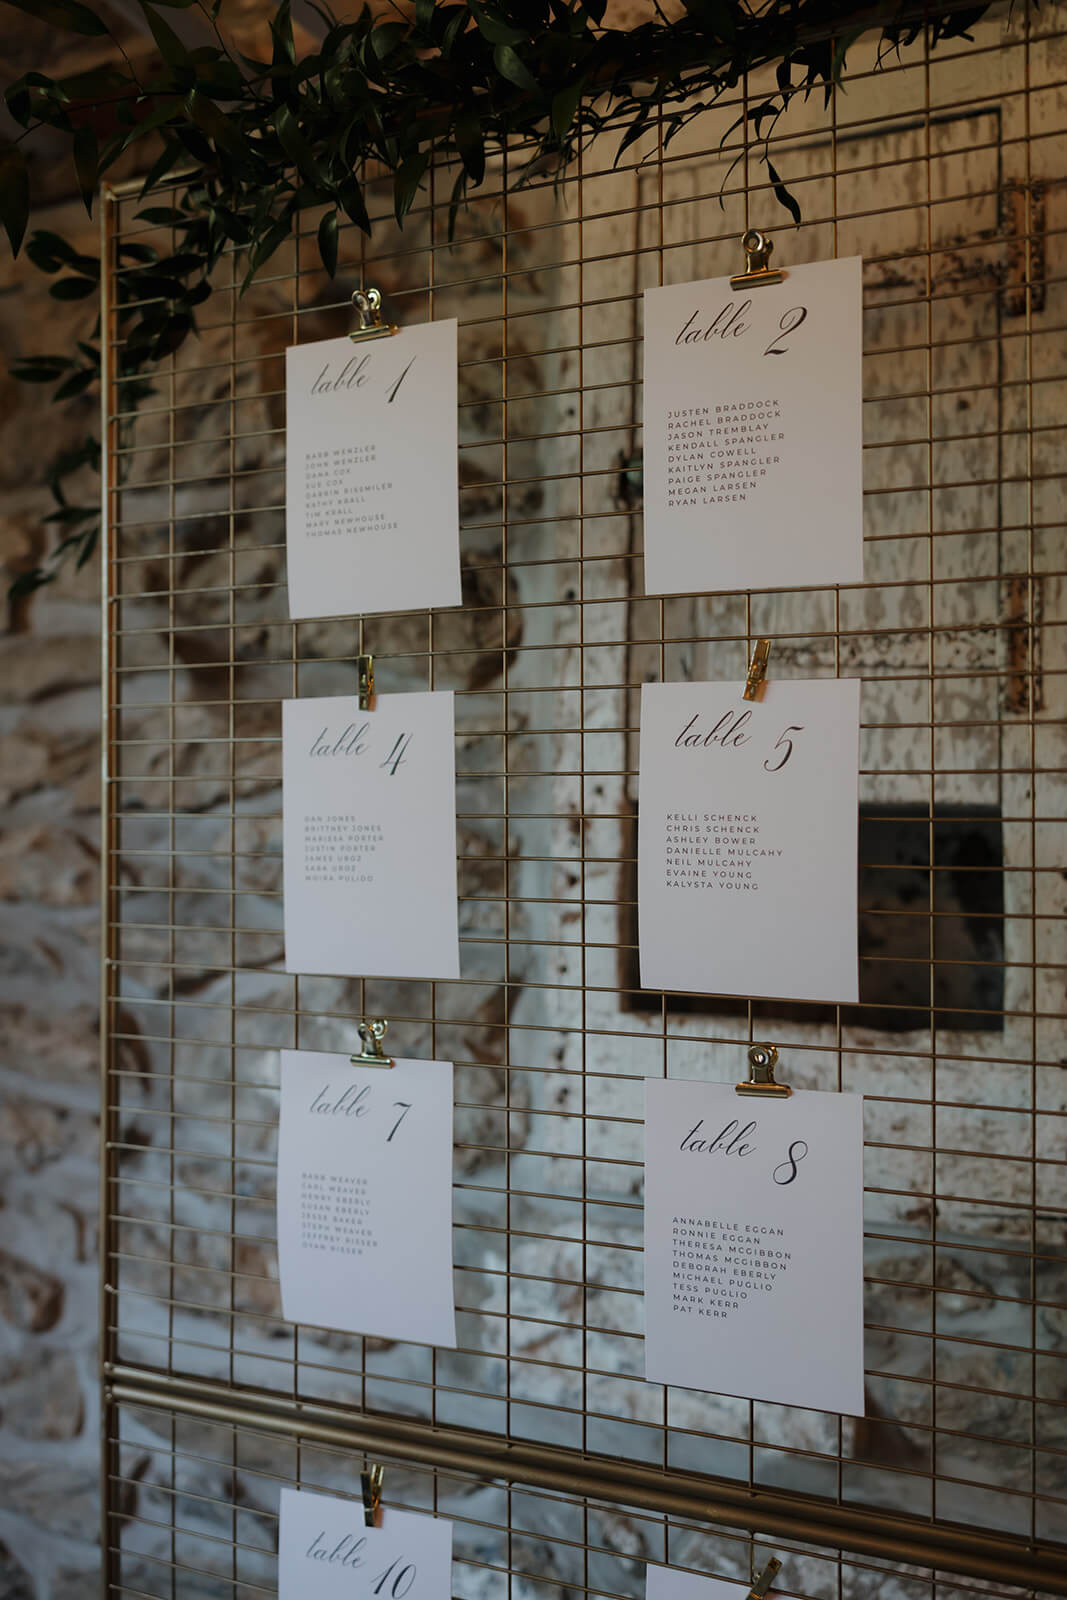 table 1
BARB WENZLER
JOHN WENZLER
DANA COX
SUE COX
DARRIN RISSMILER
KATHY KRALL
TIM KRALL
MARY NEWHOUSE
THOMAS NEWHOUSE
table 2
JUSTEN BRADDOCK
RACHEL BRADDOCK
JASON TREMBLAY
KENDALL SPANGLER
DYLAN COWELL
KAITLYN SPANGLER
PAIGE SPANGLER
MEGAN LARSEN
RYAN LARSEN
table 4
DAN JONES
BRITTNEY JONES
MARISSA PORTER
JUSTIN PORTER
JAMES UROZ
SARA UROZ
MOIRA PULIDO
table 5
KELLI SCHENCK
CHRIS SCHENCK
ASHLEY BOWER
DANIELLE MULCAHY
NEIL MULCAHY
EVAINE YOUNG
KALYSTA YOUNG
table 7
BARB WEAVER
CARL WEAVER
HENRY EBERLY
SUSAN EBERLY
JESSE BAKER
STEPH WEAVER
JEFFREY RISSER
RISSER
table 8
ANNABELLE EGGAN
RONNIE EGGAN
THERESA MCGIBBON
THOMAS MCGIBBON
DEBORAH EBERLY
MICHAEL PUGLIO
TESS PUGLIO
MARK KERR
PAT KERR
table 10